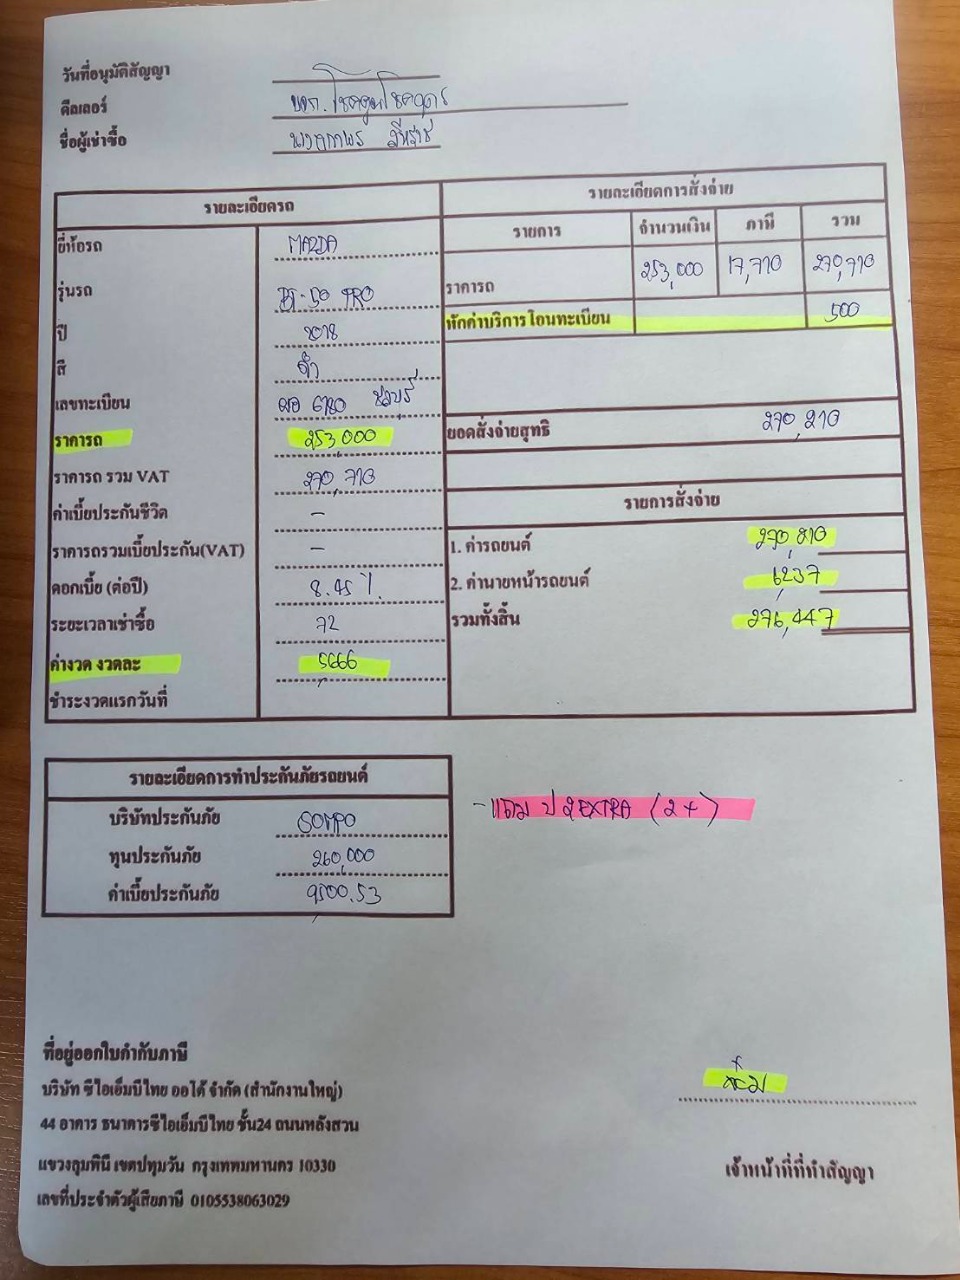 วันที่อนุมัติสัญญา
ดีลเลอร์ บจก.
ชื่อผู้เช่าซื้อ
รายละเอียดรถ
ยี่ห้อรถ MAZDA
รุ่นรถ BT-50 PRO
ปี 2018
สี ดำ
เลขทะเบียน ชลบุรี
ราคารถ 253,000
ราคารถ รวม VAT 270,710
ค่าเบี้ยประกันชีวิต -
ราคารถรวมเบี้ยประกัน(VAT) -
ดอกเบี้ย (ต่อปี) 8.45 %
ระยะเวลาเช่าซื้อ 72
ค่างวด งวดละ 5,666
ชำระงวดแรกวันที่
รายละเอียดการสั่งจ่าย
รายการ จำนวนเงิน ภาษี รวม
ราคารถ 253,000 17,710 270,710
หักค่าบริการโอนทะเบียน 500
ยอดสั่งจ่ายสุทธิ 270,210
รายการสั่งจ่าย
1. ค่ารถยนต์ 270,210
2. ค่านายหน้ารถยนต์ 6,237
รวมทั้งสิ้น 276,447
รายละเอียดการทำประกันภัยรถยนต์
บริษัทประกันภัย SOMPO
ทุนประกันภัย 260,000
ค่าเบี้ยประกันภัย 9,500.53
- แถม ป 2 EXTRA (2+)
ที่อยู่ออกใบกำกับภาษี
บริษัท ซีไอเอ็มบีไทย ออโต้ จำกัด (สำนักงานใหญ่)
44 อาคาร ธนาคารซีไอเอ็มบีไทย ชั้น24 ถนนหลังสวน
แขวงลุมพินี เขตปทุมวัน กรุงเทพมหานคร 10330
เลขที่ประจำตัวผู้เสียภาษี 0105538063029
เจ้าหน้าที่ที่ทำสัญญา